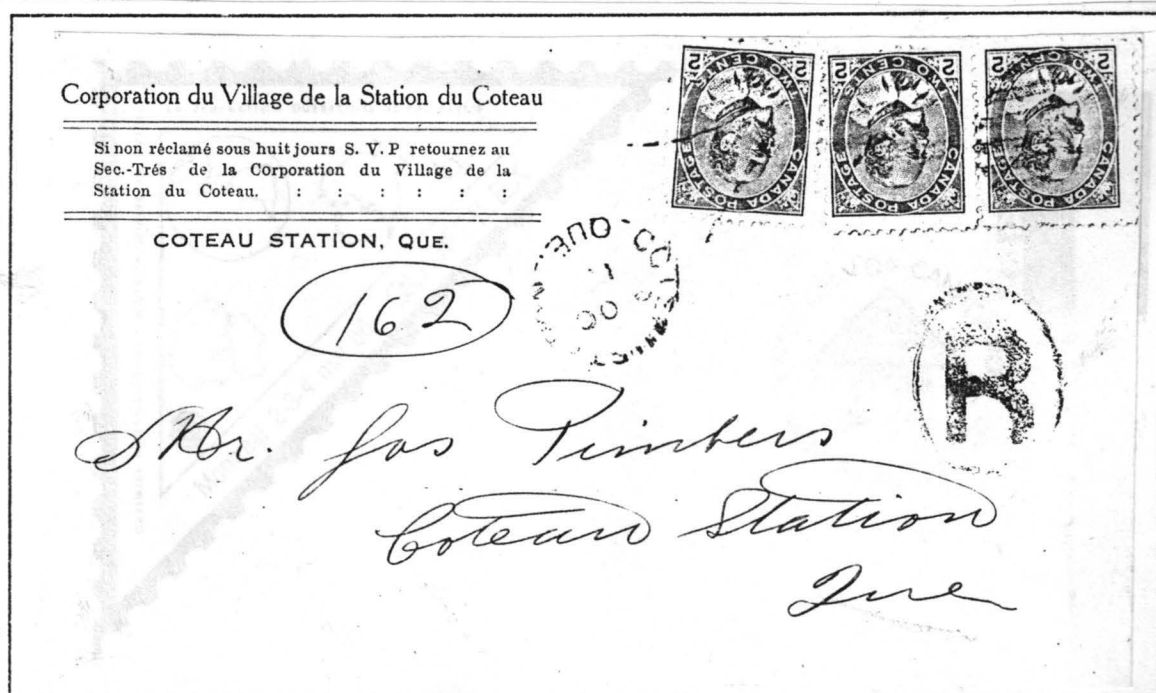 Corporation du Village de la Station du Coteau
Si non réclamé sous huit jours S. V. P retournez au
Sec.-Trés de la Corporation du Village de la
Station du Coteau. : : : : : :
COTEAU STATION, QUE.
162
2 TWO CENTS 2 CANADA POSTAGE
2 TWO CENTS 2 CANADA POSTAGE
2 TWO CENTS 2 CANADA POSTAGE
QUE.
OC
R
Mr. Jas
Coteau Station
Que